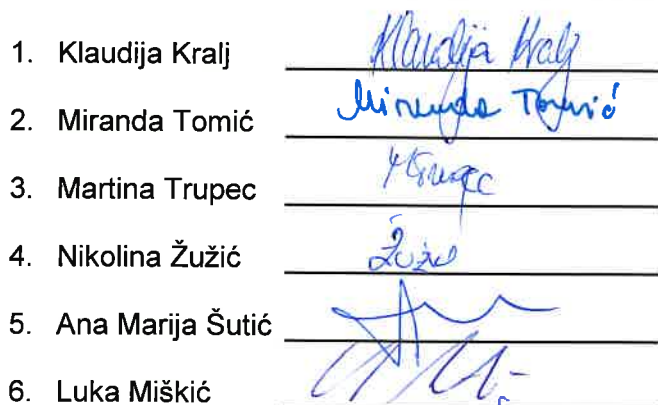 1. Klaudija Kralj Klaudija Kralj
2. Miranda Tomić Miranda Tomić
3. Martina Trupec
4. Nikolina Žužić
5. Ana Marija Šutić
6. Luka Miškić